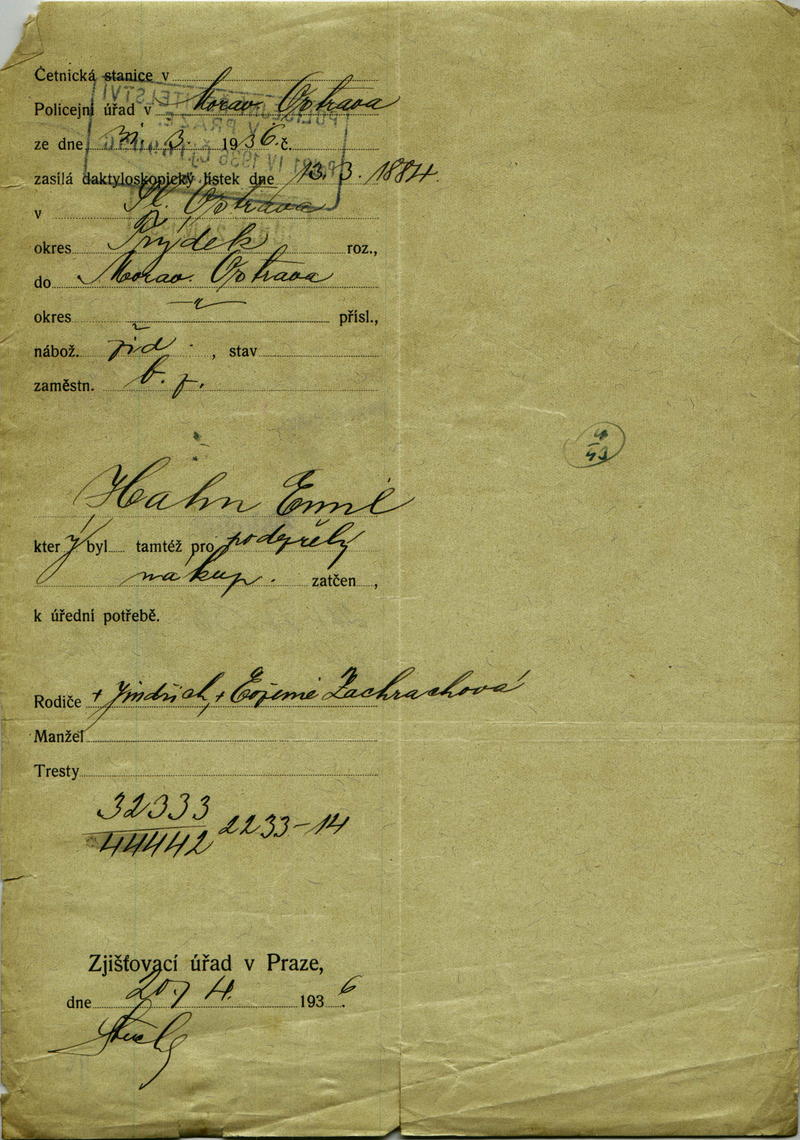 Četnická stanice v
Policejní úřad v Morav. Ostrava
ze dne 3. 1936 č.
zasílá daktyloskopický lístek dne 13. 3. 1884.
v Sl. Ostrava
okres Frýdek roz.,
do Morav. Ostrava
okres –〃– přísl.,
nábož. žid. , stav
zaměstn. b. z.
4
43
Hahn Emil
který byl tamtéž pro podezřelý
nákup. zatčen ,
k úřední potřebě.
Rodiče + Jindřich, + Eugenie Zachrachová
Manžel
Tresty
32333
44442 2233-14
Zjišťovací úřad v Praze,
dne 20/4. 1936